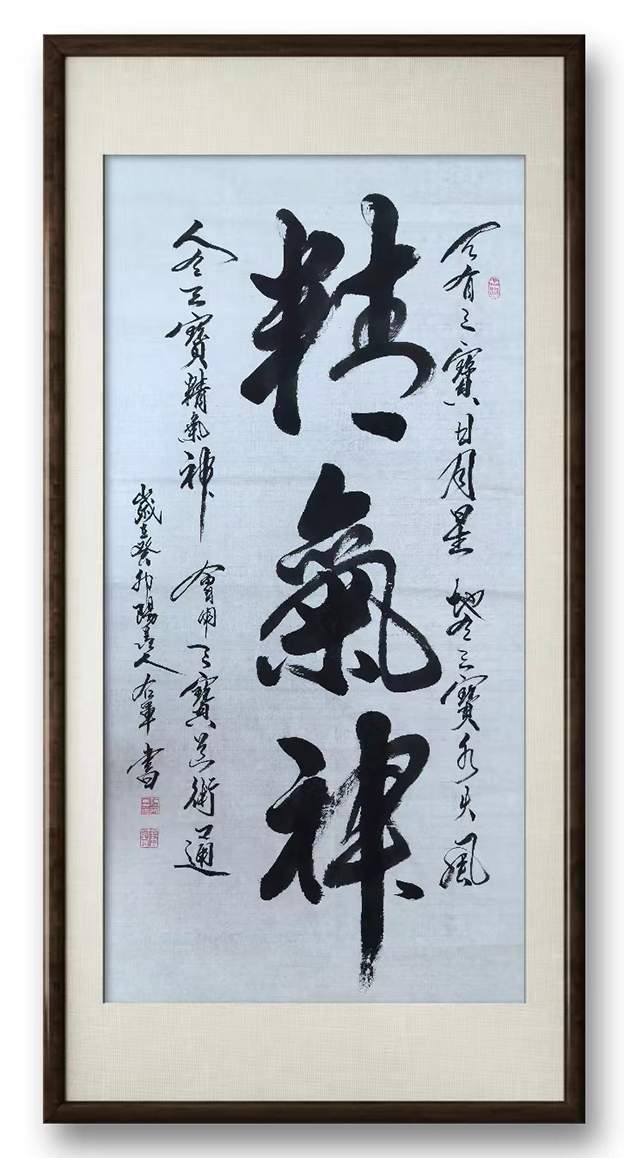 天有三寶日月星 地有三寶水火風
精氣神
人有三寶精氣神 會用三寶道術通
歲在癸卯 人右軍書